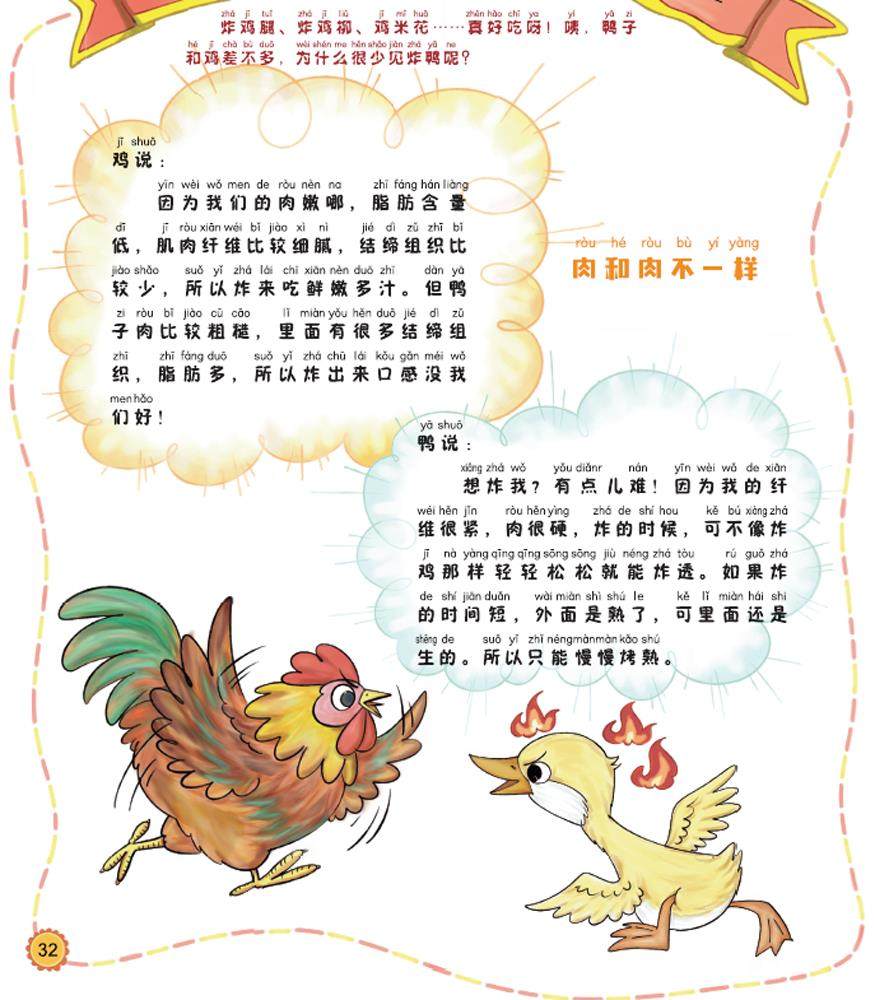 zhá jī tuǐ zhá jī liǔ jī mǐ huā zhēn hǎo chī ya yí yā zi
炸鸡腿、炸鸡柳、鸡米花……真好吃呀！咦，鸭子
hé jī chà bù duō wèi shén me hěn shǎo jiàn zhá yā ne
和鸡差不多，为什么很少见炸鸭呢？
jī shuō
鸡说：
yīn wèi wǒ men de ròu nèn na zhī fáng hán liàng
因为我们的肉嫩哪，脂肪含量
dī jī ròu xiān wéi bǐ jiào xì nì jié dì zǔ zhī bǐ
低，肌肉纤维比较细腻，结缔组织比
jiào shǎo suǒ yǐ zhá lái chī xiān nèn duō zhī dàn yā
较少，所以炸来吃鲜嫩多汁。但鸭
zi ròu bǐ jiào cū cāo lǐ miàn yǒu hěn duō jié dì zǔ
子肉比较粗糙，里面有很多结缔组
zhī zhī fáng duō suǒ yǐ zhá chū lái kǒu gǎn méi wǒ
织，脂肪多，所以炸出来口感没我
men hǎo
们好！
ròu hé ròu bù yí yàng
肉和肉不一样
yā shuō
鸭说：
xiǎng zhá wǒ yǒu diǎnr nán yīn wèi wǒ de xiān
想炸我？有点儿难！因为我的纤
wéi hěn jǐn ròu hěn yìng zhá de shí hou kě bú xiàng zhá
维很紧，肉很硬，炸的时候，可不像炸
jī nà yàng qīng qīng sōng sōng jiù néng zhá tòu rú guǒ zhá
鸡那样轻轻松松就能炸透。如果炸
de shí jiān duǎn wài miàn shì shú le kě lǐ miàn hái shi
的时间短，外面是熟了，可里面还是
shēng de suǒ yǐ zhǐ néng màn màn kǎo shú
生的。所以只能慢慢烤熟。
32